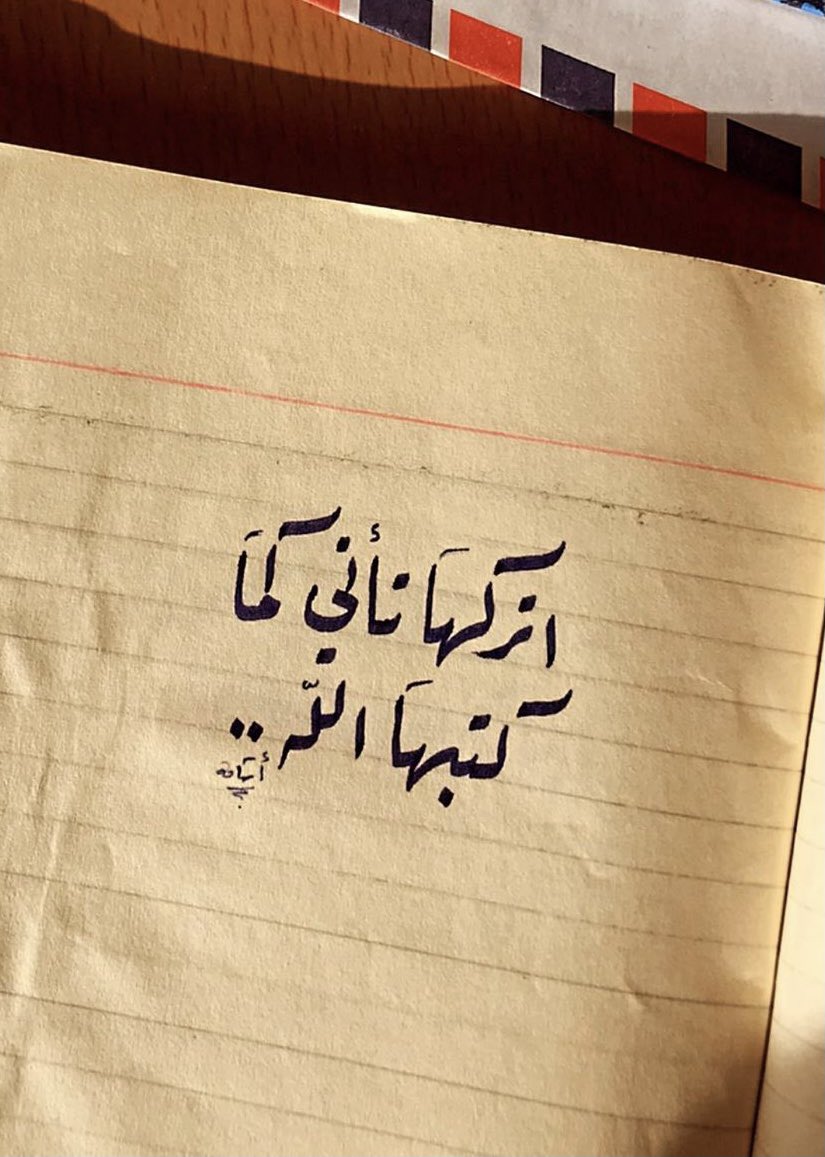 اتركها تأتي كما
كتبها الله ..